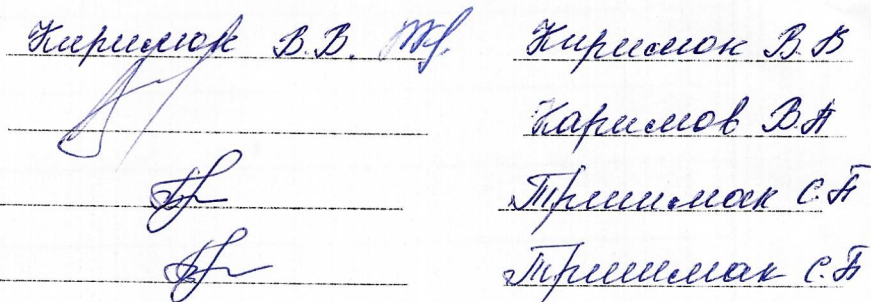 Киримюк В.В. Киримюк В.В
Каримов В.А
Тришмак С.П
Тришмак С.П